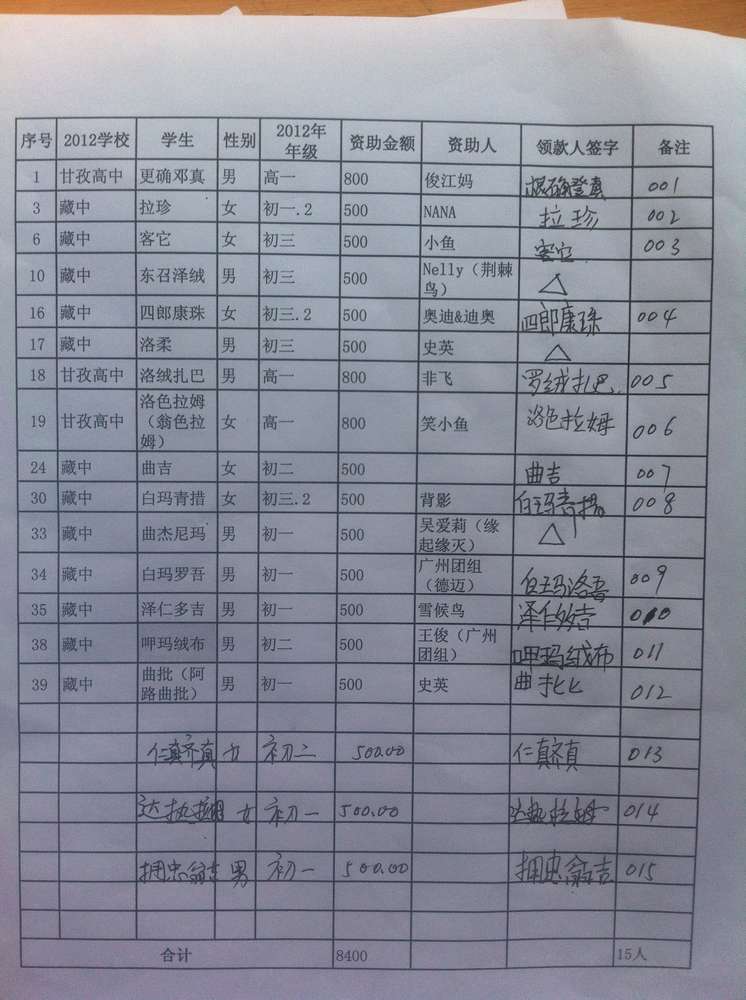 序号 2012学校 学生 性别 2012年年级 资助金额 资助人 领款人签字 备注
1 甘孜高中 更确邓真 男 高一 800 俊江妈 根确登真 001
3 藏中 拉珍 女 初一.2 500 NANA 拉珍 002
6 藏中 客它 女 初三 500 小鱼 客它 003
10 藏中 东召泽绒 男 初三 500 Nelly（荆棘鸟） △
16 藏中 四郎康珠 女 初三.2 500 奥迪&迪奥 四郎康珠 004
17 藏中 洛柔 男 初三 500 史英 △
18 甘孜高中 洛绒扎巴 男 高一 800 非飞 罗绒扎巴 005
19 甘孜高中 洛色拉姆（翁色拉姆） 女 高一 800 笑小鱼 洛色拉姆 006
24 藏中 曲吉 女 初二 500 曲吉 007
30 藏中 白玛青措 女 初三.2 500 背影 白玛青措 008
33 藏中 曲杰尼玛 男 初一 500 吴爱莉（缘起缘灭） △
34 藏中 白玛罗吾 男 初一 500 广州团组（德迈） 白玛洛吾 009
35 藏中 泽仁多吉 男 初一 500 雪候鸟 泽仁多吉 010
38 藏中 呷玛绒布 男 初二 500 王俊（广州团组） 呷玛绒布 011
39 藏中 曲批（阿路曲批） 男 初一 500 史英 曲批 012
仁真齐真 女 初二 500.00 仁真齐真 013
达热拉姆 女 初一 500.00 达热拉姆 014
拥忠翁吉 男 初一 500.00 拥忠翁吉 015
合计 8400 15人